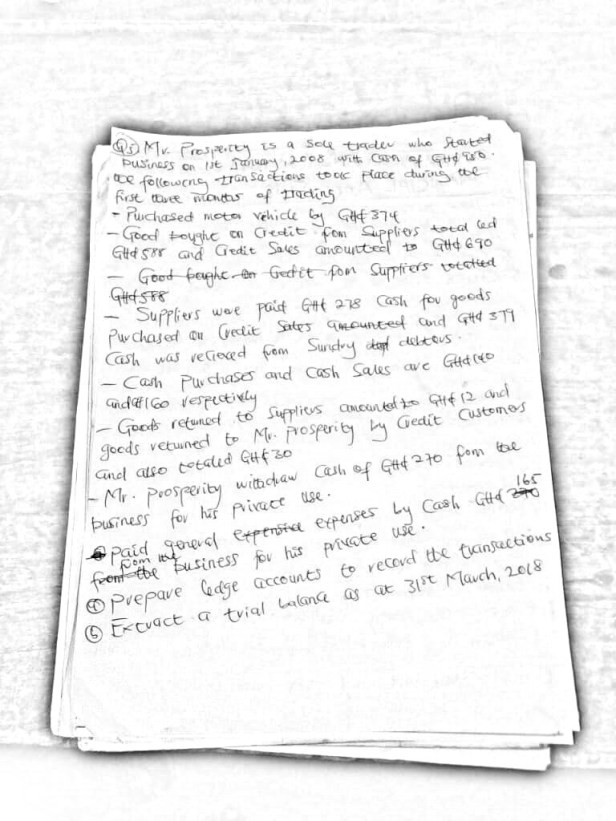 Q5) Mr. Prosperity is a Sole trader who Started
business on 1st January, 2008 with Cash of GH¢ 950.
The following transactions took place during the
first three months of trading
- Purchased motor vehicle by GH¢ 374
- Good bought on Credit from Suppliers totalled
GH¢ 588 and Credit Sales amounted to GH¢ 690
- Good bought on Credit from Suppliers totalled
GH¢ 588
- Suppliers were paid GH¢ 278 Cash for goods
Purchased on Credit Sales amounted and GH¢ 379
Cash was recieved from Sundry debtors.
- Cash Purchases and Cash Sales are GH¢ 140
and ¢160 respectively
- Goods returned to Suppliers amounted to GH¢ 12 and
goods returned to Mr. Prosperity by Credit Customers
and also totaled GH¢ 30
- Mr. Prosperity withdraw Cash of GH¢ 270 from the
business for his Private Use.
165
- Paid general expenses by Cash GH¢
from the business for his private use.
a) Prepare ledge accounts to record the transactions
b) Extract a trial balance as at 31st March, 2018